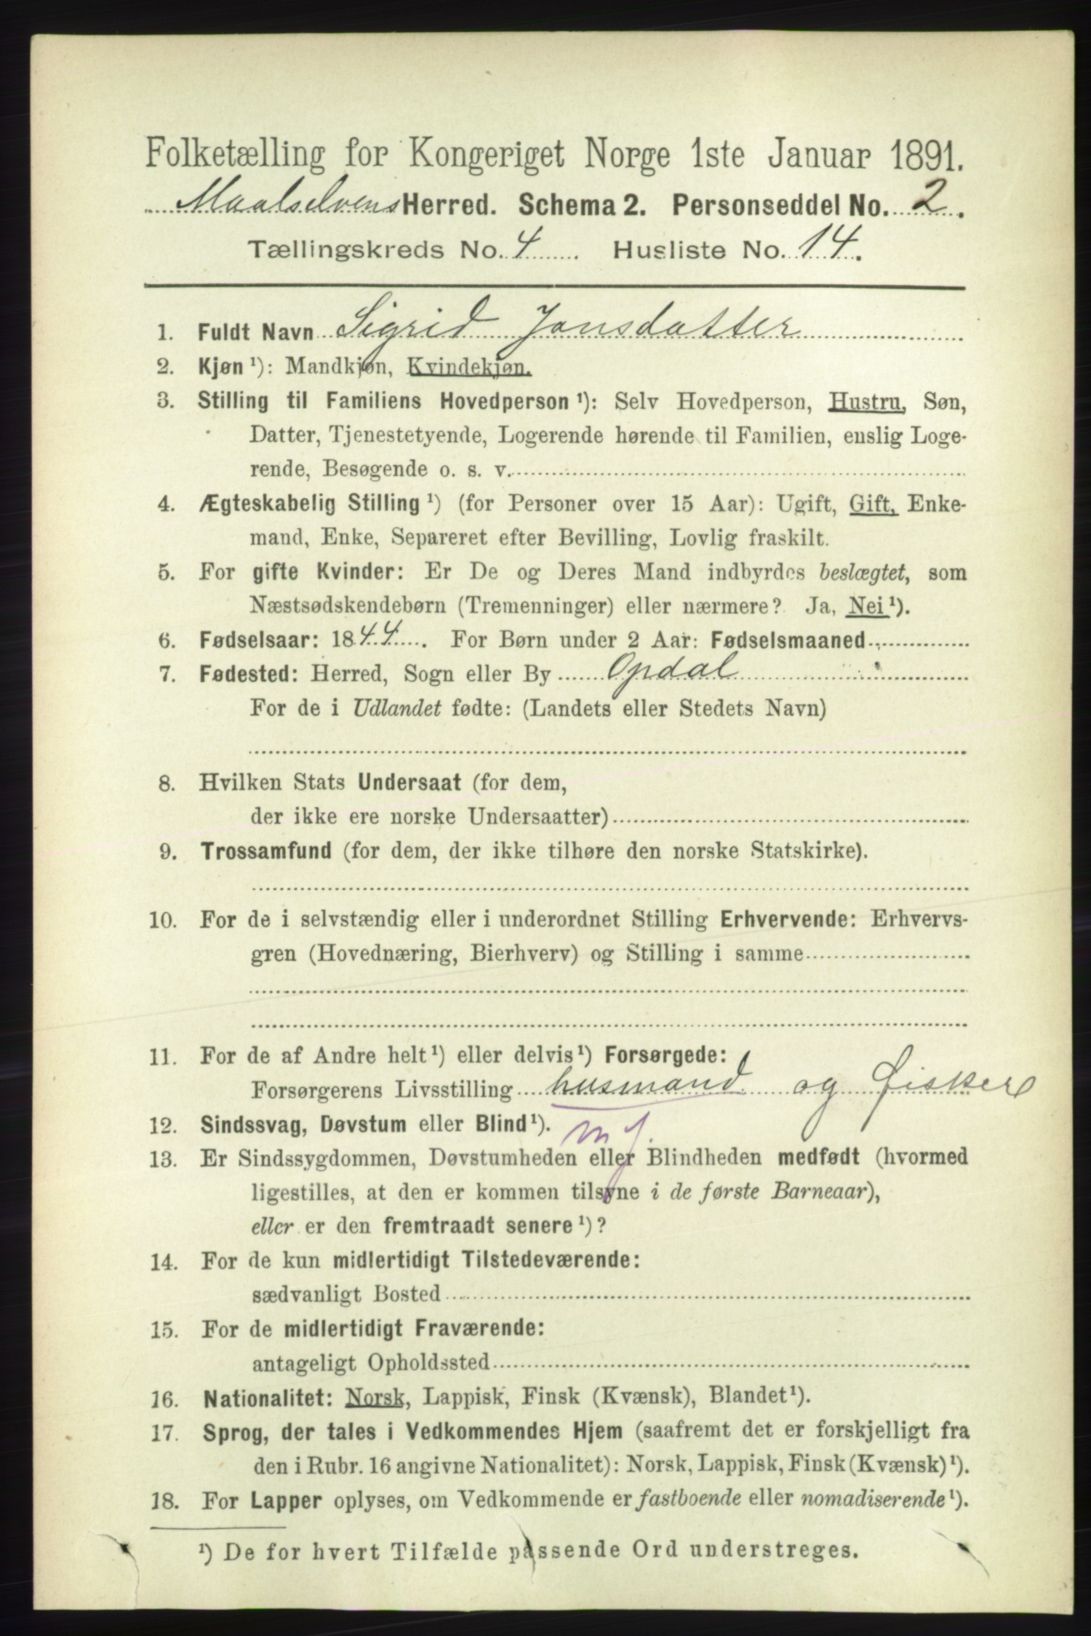 Folketælling for Kongeriget Norge 1ste Januar 1891.
Maalselvens Herred. Schema 2. Personseddel No. 2.
Tællingskreds No. 4. Husliste No. 14.
1. Fuldt Navn Sigrid Jonsdatter
2. Kjøn ¹): Mandkjøn, Kvindekjøn.
3. Stilling til Familiens Hovedperson ¹): Selv Hovedperson, Hustru, Søn,
Datter, Tjenestetyende, Logerende hørende til Familien, enslig Loge-
rende, Besøgende o. s. v.
4. Ægteskabelig Stilling ¹) (for Personer over 15 Aar): Ugift, Gift, Enke-
mand, Enke, Separeret efter Bevilling, Lovlig fraskilt.
5. For gifte Kvinder: Er De og Deres Mand indbyrdes beslægtet, som
Næstsødskendebørn (Tremenninger) eller nærmere? Ja, Nei ¹).
6. Fødselsaar: 1844. For Børn under 2 Aar: Fødselsmaaned
7. Fødested: Herred, Sogn eller By Opdal
For de i Udlandet fødte: (Landets eller Stedets Navn)
8. Hvilken Stats Undersaat (for dem,
der ikke ere norske Undersaatter)
9. Trossamfund (for dem, der ikke tilhøre den norske Statskirke).
10. For de i selvstændig eller i underordnet Stilling Erhvervende: Erhvervs-
gren (Hovednæring, Bierhverv) og Stilling i samme
11. For de af Andre helt ¹) eller delvis ¹) Forsørgede:
Forsørgerens Livsstilling husmand og fisker
12. Sindssvag, Døvstum eller Blind ¹). m j.
13. Er Sindssygdommen, Døvstumheden eller Blindheden medfødt (hvormed
ligestilles, at den er kommen tilsyne i de første Barneaar),
eller er den fremtraadt senere ¹)?
14. For de kun midlertidigt Tilstedeværende:
sædvanligt Bosted
15. For de midlertidigt Fraværende:
antageligt Opholdssted
16. Nationalitet: Norsk, Lappisk, Finsk (Kvænsk), Blandet ¹).
17. Sprog, der tales i Vedkommendes Hjem (saafremt det er forskjelligt fra
den i Rubr. 16 angivne Nationalitet): Norsk, Lappisk, Finsk (Kvænsk) ¹).
18. For Lapper oplyses, om Vedkommende er fastboende eller nomadiserende ¹).
¹) De for hvert Tilfælde passende Ord understreges.